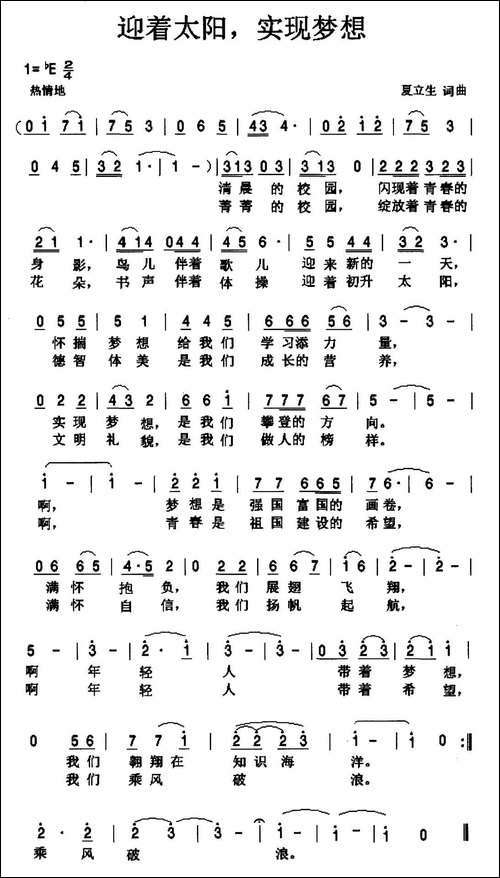 迎着太阳，实现梦想
1=♭E 2/4
热情地 夏立生 词曲
(0 1 7 1 | 7 5 3 | 0 2 4 5 | 4 3 4· | 0 2 1 2 | 7 5
0 4 5 | 3 2 1· | 1 - )| 3 1 3 0 3 | 3 1 3 0 | 2 2 2 3 2 3
清晨的校园，闪现着青春的
菁菁的校园，绽放着青春的
2 1 1· | 4 1 4 0 4 4 | 4 5 6· | 3 4 5 4 4 | 3 2 3·
身影，鸟儿伴着歌儿迎来新的一天，
花朵，书声伴着体操迎着初升太阳，
0 5 5 | 5 2 | 4 4 5 | 6 6 6 5 6 | 3 - | 3 -
怀揣梦想给我们学习添力量，
德智体美是我们成长的营养，
0 2 2 | 4 3 2 | 6 6 1 | 7 7 7 6 7 | 5 - | 5 -
实现梦想，是我们攀登的方向。
文明礼貌，是我们做人的榜样。
1 - | 1 - | 2 2 1 | 7 7 6 6 5 | 7 6· | 6 -
啊，梦想是强国富国的画卷，
啊，青春是祖国建设的希望，
0 6 6 5 | 4·5 2 | 0 2 2 | 6 6 7 | 1 6 | 2 - | 2 -
满怀抱负，我们展翅飞翔，
满怀自信，我们扬帆起航，
5 - | 3 - | 2· 1 | 3 - | 3 - | 0 3 2 3 | 2 3 2
啊年轻人带着梦想，
啊年轻人带着希望，
0 5 6 | 7 7 1 | 2 2 2 3 | 1 - | 1 0 :||
我们翱翔在知识海洋。
我们乘风破浪。
2· 2 | 2 3 | 3 - | 1 - | 1 - | 1 0 ||
乘风破浪。